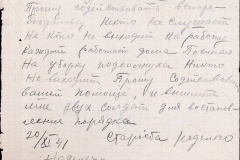 Прошу содействовать
Никто не слушает
На кто не выходит на работу
каждый работает дома Посылаю
На уборку подсолнуха Никто
Не выходит Прошу Содействовать
вашей помощи и вышлите
мне двух солдат для востонов
ления порядка
20/XI 41 Староста